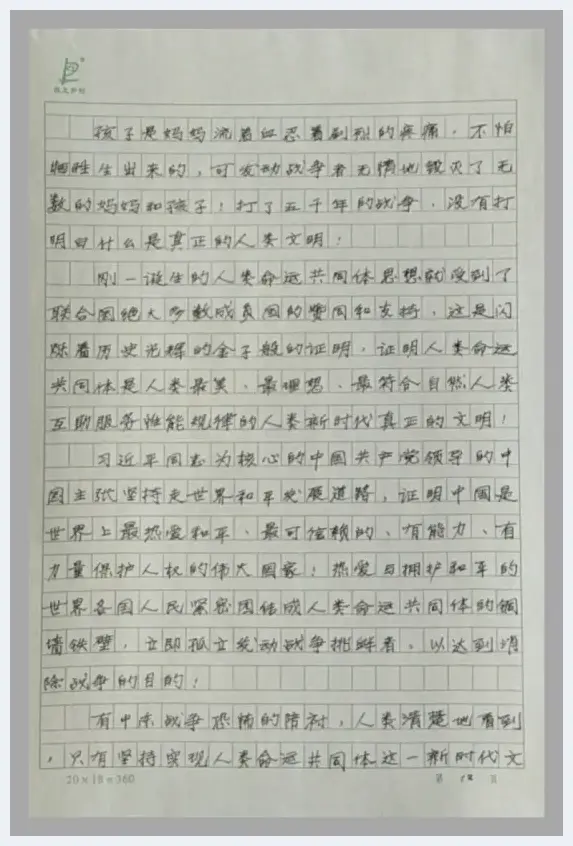 孩子是妈妈流着血忍着剧烈的疼痛，不怕
牺牲生出来的，可发动战争者无情地毁灭了无
数的妈妈和孩子！打了五千年的战争，没有打
明白什么是真正的人类文明！
刚一诞生的人类命运共同体思想就受到了
联合国绝大多数成员国的赞同和支持，这是闪
烁着历史光辉的金子般的证明，证明人类命运
共同体是人类最美、最理想、最符合自然人类
互助服务性能规律的人类新时代真正的文明！
习近平同志为核心的中国共产党领导的中
国主张坚持走世界和平发展道路，证明中国是
世界上最热爱和平、最可信赖的、有能力、有
力量保护人权的伟大国家！热爱与拥护和平的
世界各国人民紧密团结成人类命运共同体的铜
墙铁壁，立即孤立发动战争挑衅者，以达到消
除战争的目的！
有中东战争恐怖的陪衬，人类清楚地看到
，只有坚持实现人类命运共同体这一新时代文
20×18=360
第 页